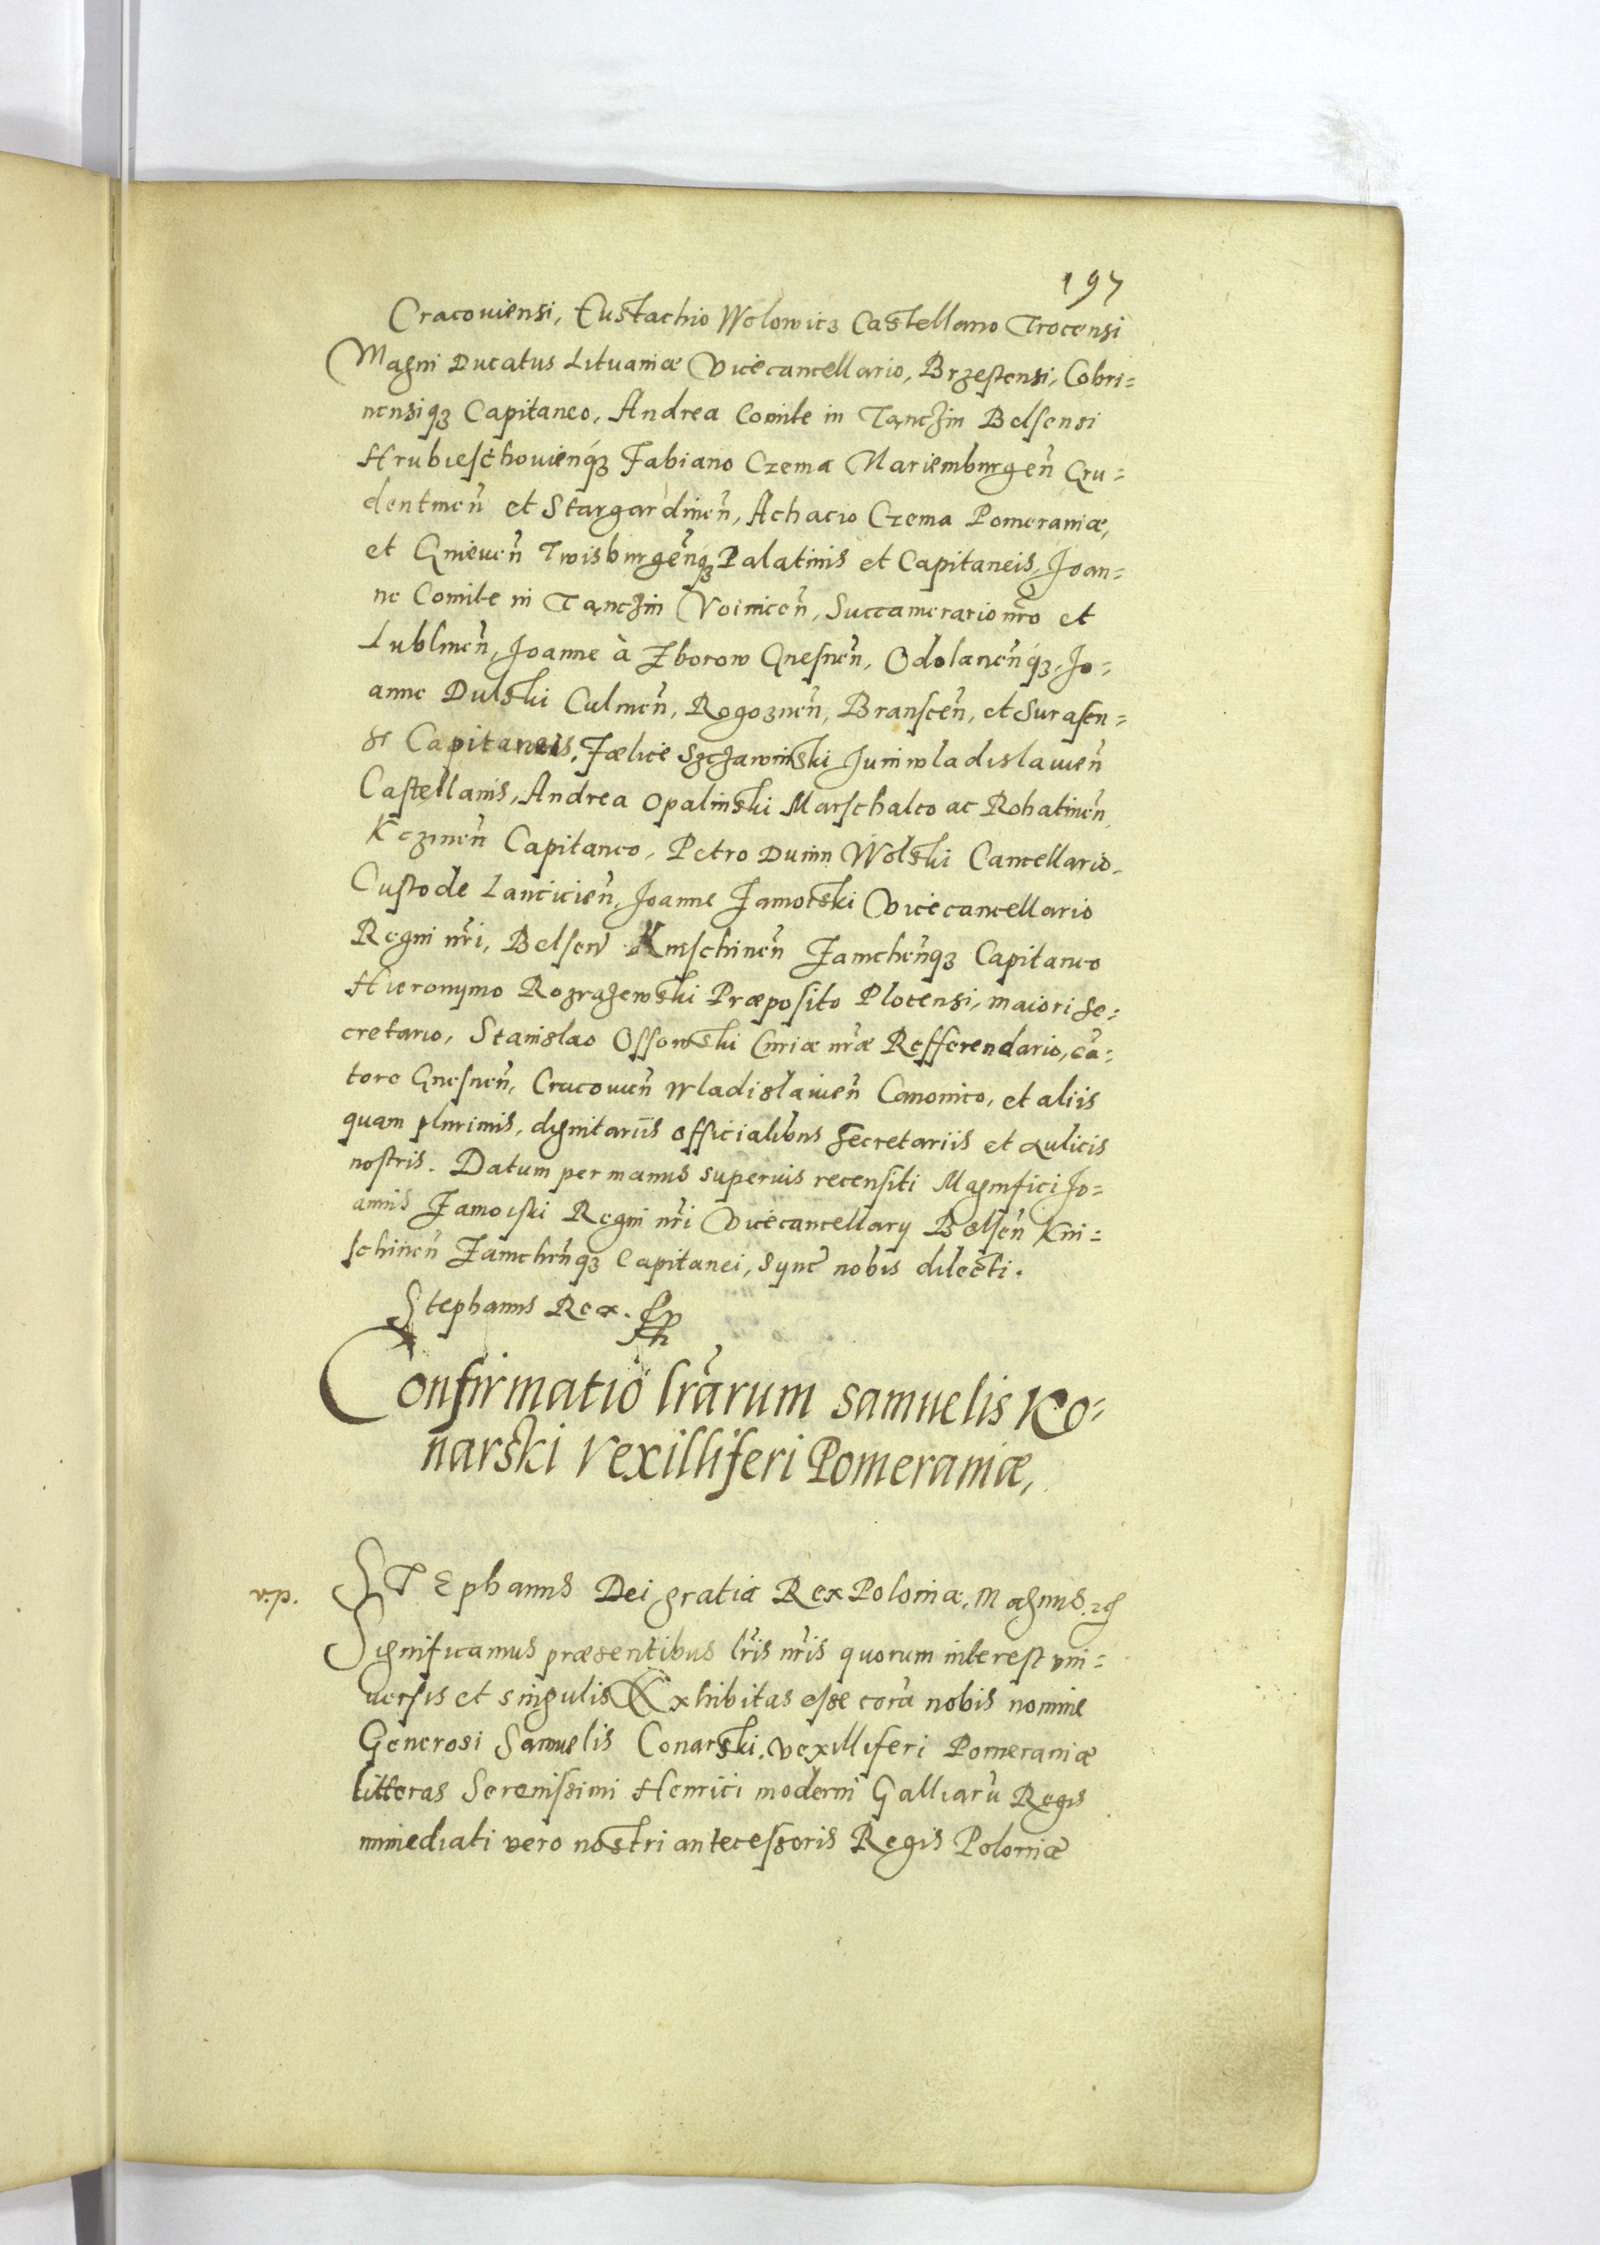 197
Cracouiensi, Eustachio Wolowicz Castellano Trocensi
Magni Ducatus Lituaniæ Vicecancellario, Brzestensi, Cobri=
nensiqꝫ Capitaneo, Andrea Comite in Tanczin Belsensi
Hrubieschouienqꝫ Fabiano Czema Mariemburgen̄ Gru=
dentinen̄ et Stargardinen̄, Achacio Czema Pomeraniæ,
et Gnieuen̄ Palatinis et Capitaneis, Joan=
ne Comite in Tanczin Voinicen̄, Succamerario nr̄o et
Lublinen̄, Joanne à Zborow Gnesnen̄, Odolanen̄qꝫ, Jo=
anne Dulski Culmen̄, Rogoznen̄, Branscen̄, et Surasen=
si Capitaneis, Fœlice Szczawinski Juniwladislauien̄
Castellanis, Andrea Opalinski Marschalco ac Rohatinen̄
Capitaneo, Petro Dunin Wolski Cancellario,
Custode Lancicien̄, Joanne Zamoiski Vicecancellario
Regni nr̄i, Belsen̄ Knischinen̄ Zamchen̄qꝫ Capitaneo
Hieronymo Rozrazewski Præposito Plocensi, maiori Se=
cretario, Stanislao Ossowski Curiæ nr̄æ Refferendario, cā=
tore Gnesnen̄, Cracouien̄ Wladislauien̄ Canonico, et aliis
quam plurimis, dignitariis officialibus Secretariis et Aulicis
nostris. Datum per manus superuis recensiti Magnifici Jo=
annis Zamoiski Regni nr̄i Vicecancellarij Belsen̄ Kni=
schinen̄ Zamchen̄qꝫ Capitanei, Sync̄ nobis dilecti.
Stephanus Rex.
Confirmatio lr̄arum Samuelis Ko=
narski Vexilliferi Pomeraniæ,
v.p.
STEphanus Dei gratia Rex Poloniæ, Magnus
Significamus præsentibus lr̄is nr̄is quorum interest vni=
uersis et singulis Exhibitas esse corā nobis nomine
Generosi Samuelis Conarski, vexilliferi Pomeraniæ
litteras Serenissimi Henrici moderni Galliarū Regis
immediati vero nostri antecessoris Regis Poloniæ